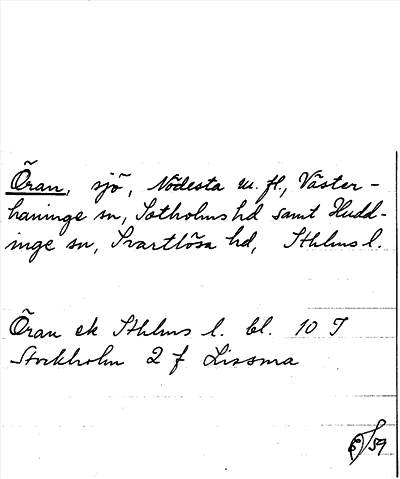 Öran, sjö, Nödesta m. fl., Väster-
haninge sn, Sotholms hd samt Hudd-
inge sn, Svartlösa hd, Sthlms l.
Öran ek Sthlms l. bl. 10 I
Stockholm 2 f Lissma
/59